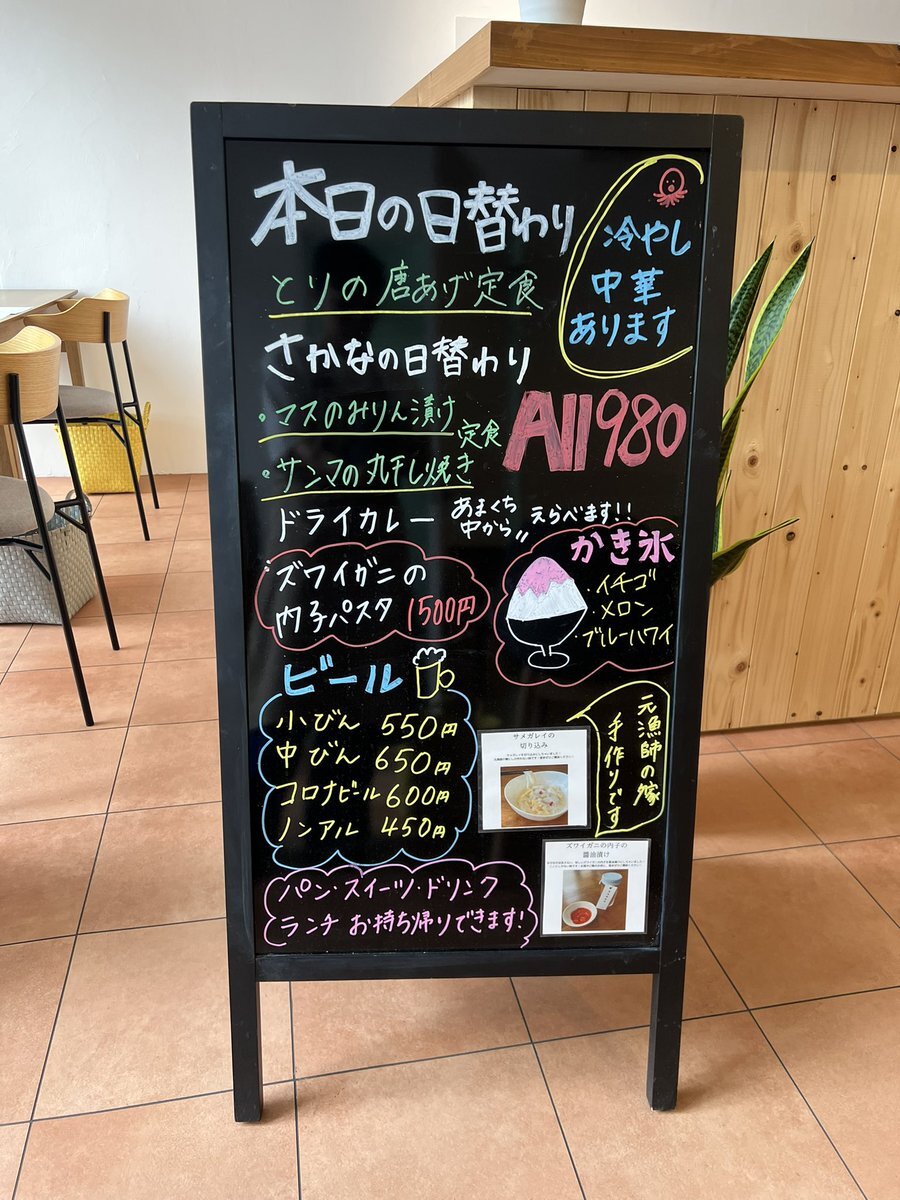 本日の日替わり
とりの唐あげ定食
冷やし
中華
あります
さかなの日替わり
・マスのみりん漬け
・サンマの丸干し焼き
定食
All 980
ドライカレー
あまくち
中から〃
えらべます!!
ズワイガニの
内子パスタ 1500円
かき氷
・イチゴ
・メロン
・ブルーハワイ
ビール
小びん 550円
中びん 650円
コロナビール 600円
ノンアル 450円
サメガレイの
切り込み
元漁師の嫁
手作りです
ズワイガニの内子の
醤油漬け
パン・スイーツ・ドリンク
ランチ お持ち帰りできます!